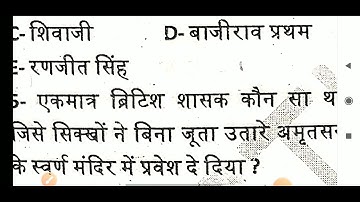 C- शिवाजी D- बाजीराव प्रथम
E- रणजीत सिंह
5- एकमात्र ब्रिटिश शासक कौन सा थ
जिसे सिक्खों ने बिना जूता उतारे अमृतसर
के स्वर्ण मंदिर में प्रवेश दे दिया ?